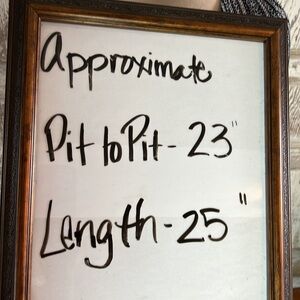 Approximate
Pit to Pit - 23"
Length - 25"